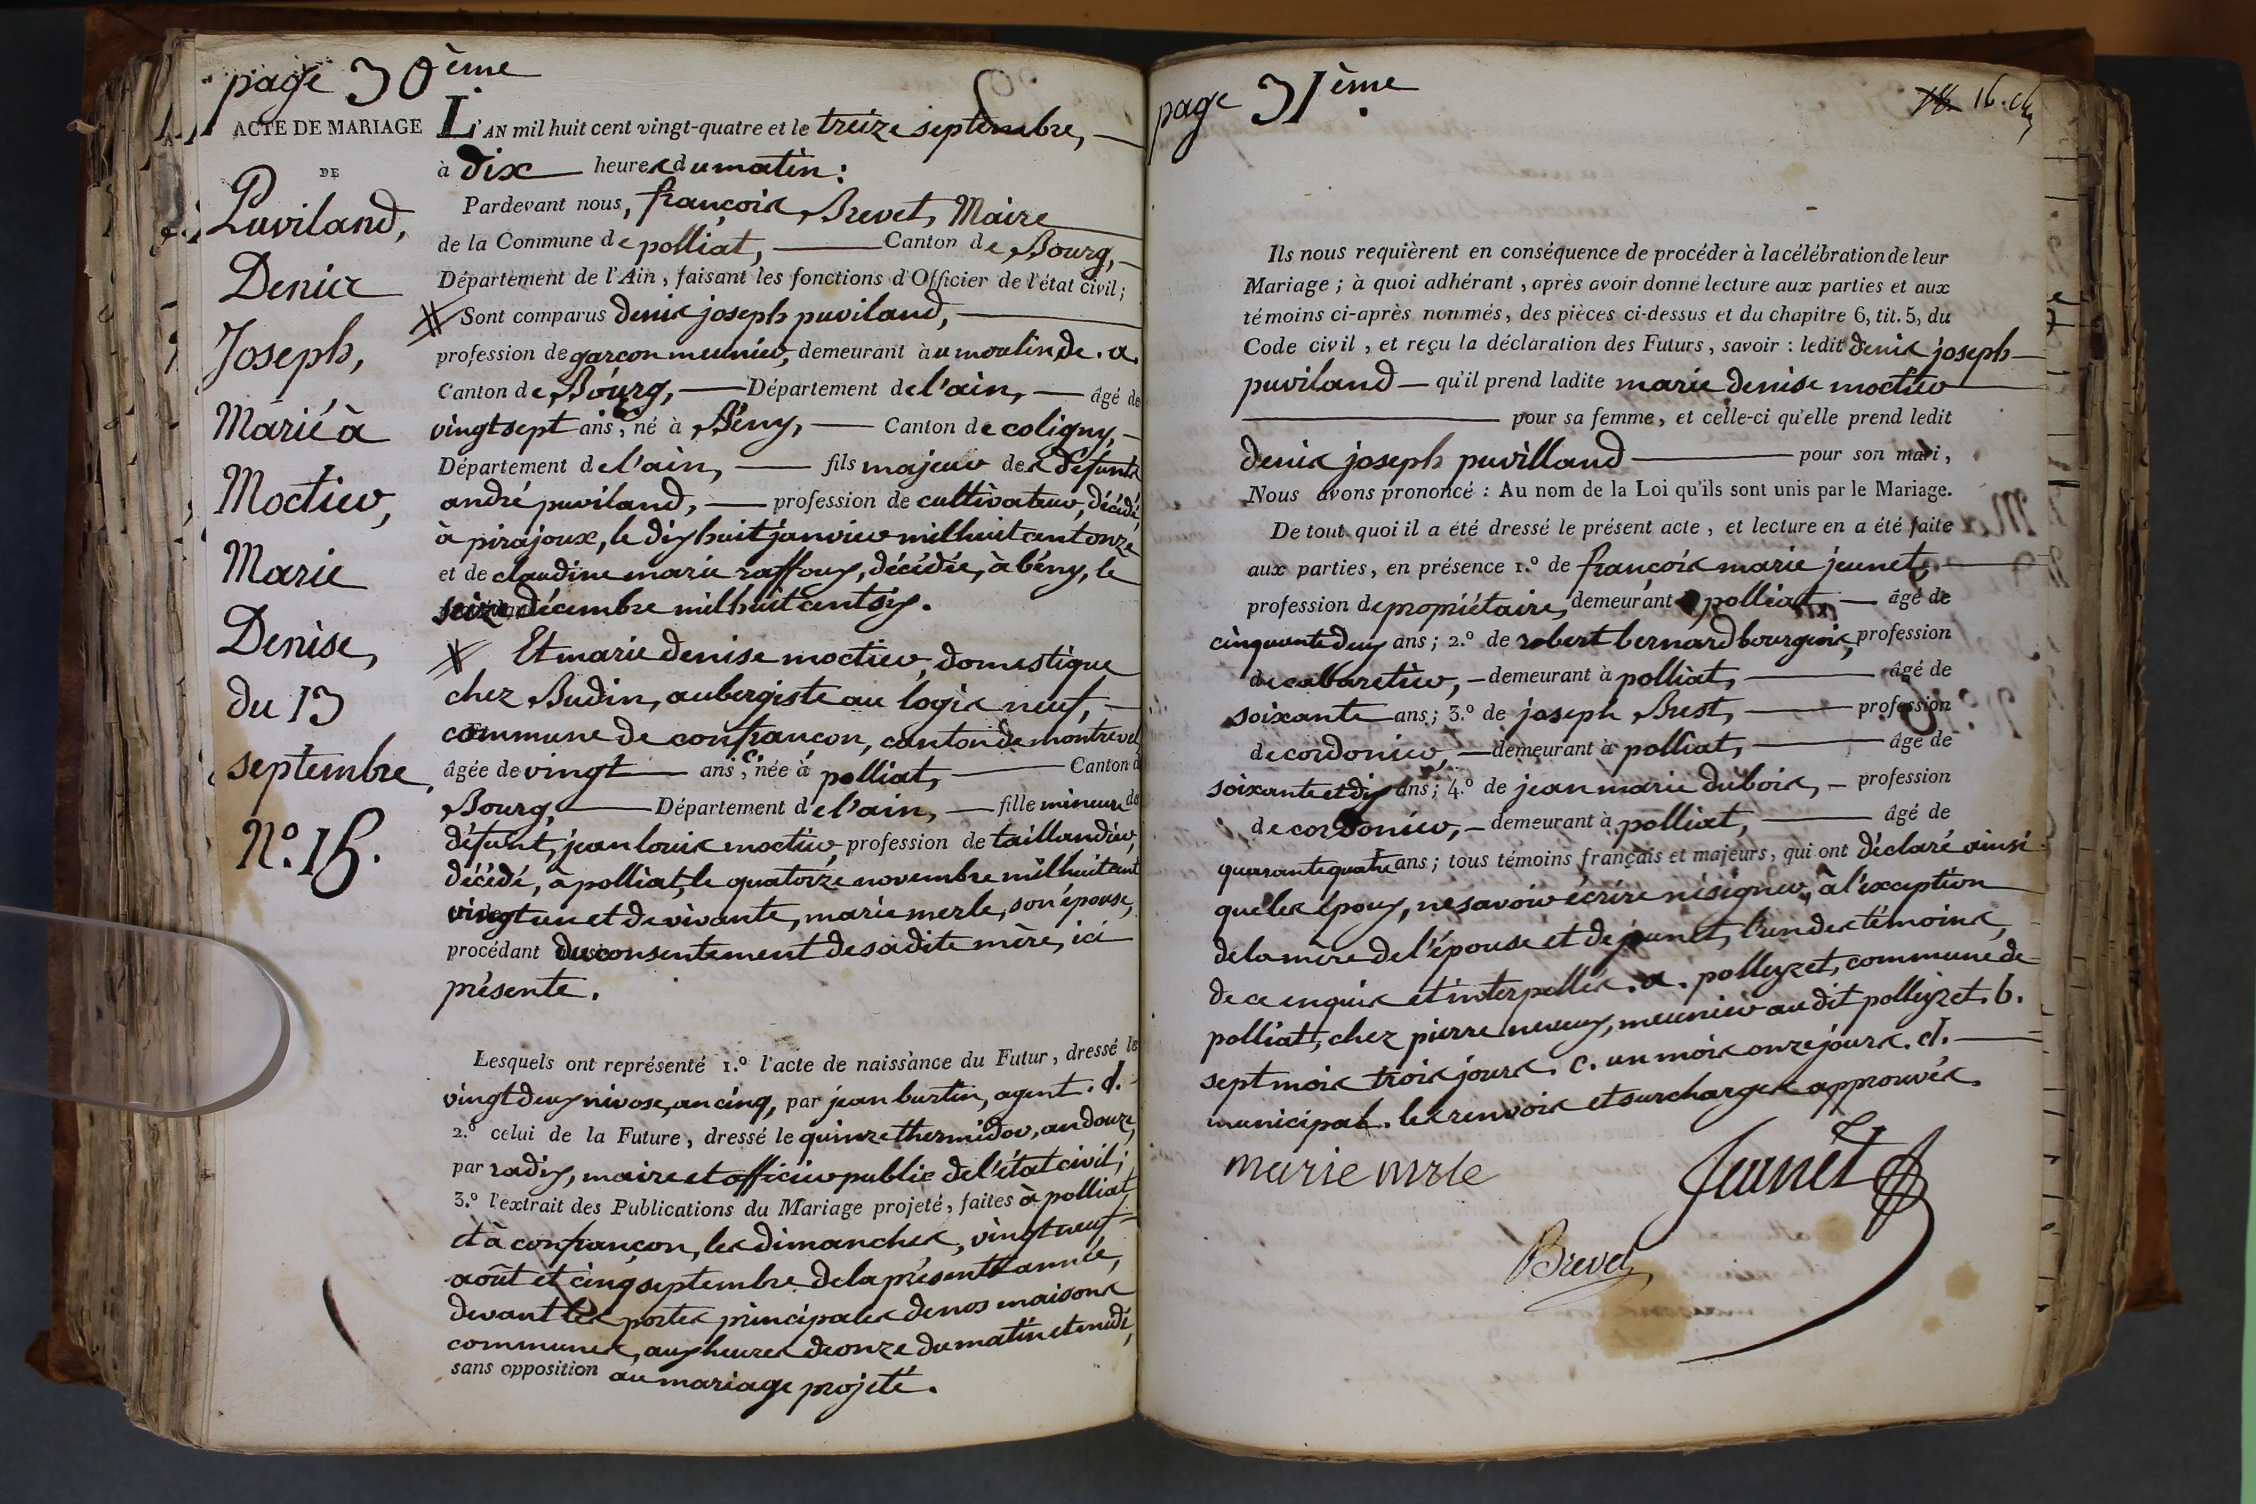 page 30ème
ACTE DE MARIAGE
DE
Puviland,
Denis
Joseph,
Marié à
Moctier,
Marie
Denise,
du 13
septembre,
N.º 15.
L'AN mil huit cent vingt-quatre et le treize septembre,
à dix heures du matin:
Pardevant nous, françois Brevet, Maire
de la Commune de polliat, Canton de Bourg,
Département de l'Ain, faisant les fonctions d'Officier de l'état civil;
Sont comparus denis joseph puviland,
profession de garçon meunier, demeurant au moulin de . a.
Canton de Bourg, Département de l'ain, âgé de
vingt sept ans, b. né à Bény, Canton de coligny,
Département de l'ain, fils majeur des défunts
andré puviland, profession de cultivateur, décédé,
à pirajoux, le dix huit janvier mil huit cent onze
et de claudine marie raffoux, décédée, à bény, le
seize décembre mil huit cent six.
Et marie denise moctier, domestique
chez Budin, aubergiste au logis neuf,
commune de confrançon, canton de montrevel
âgée de vingt ans, c. née à polliat, Canton d
Bourg, Département de l'ain, fille mineure de
défunt, jean louis moctier, profession de taillandier,
décédé, à polliat, le quatorze novembre mil huit cent
vingt un et de vivante, marie merle, son épouse,
procédant du consentement de sa dite mère, ici
présente.
Lesquels ont représenté 1.º l'acte de naissance du Futur, dressé le
vingt deux nivose, an cinq, par jean burtin, agent . d.
2.º celui de la Future, dressé le quinze thermidor, an douze,
par radix, maire et officier public de l'état civil;
3.º l'extrait des Publications du Mariage projeté, faites à polliat,
et à confrançon, les dimanches, vingt neuf
août et cinq septembre de la présente année,
devant les portes principales de nos maisons
communes, aux heures de onze du matin et midi,
sans opposition au mariage projeté.
page 31ème
16.
Ils nous requièrent en conséquence de procéder à la célébration de leur
Mariage; à quoi adhérant, après avoir donné lecture aux parties et aux
témoins ci-après nommés, des pièces ci-dessus et du chapitre 6, tit. 5, du
Code civil, et reçu la déclaration des Futurs, savoir: ledit denis joseph
puviland qu'il prend ladite marie denise moctier
pour sa femme, et celle-ci qu'elle prend ledit
denis joseph puvilland pour son mari,
Nous avons prononcé: Au nom de la Loi qu'ils sont unis par le Mariage.
De tout quoi il a été dressé le présent acte, et lecture en a été faite
aux parties, en présence 1.º de françois marie jeunet,
profession de propriétaire, demeurant à polliat, âgé de
cinquante deux ans; 2.º de robert bernard bourgeois, profession
de cabaretier, demeurant à polliat, âgé de
soixante ans; 3.º de joseph Brest, profession
de cordonier, demeurant à polliat, âgé de
soixante et dix ans; 4.º de jean marie dubois, profession
de cordonier, demeurant à polliat, âgé de
quarante quatre ans; tous témoins français et majeurs, qui ont déclaré ainsi
que les époux, ne savoir écrire ni signer, à l'exception
de la mère de l'épouse et de jeunet, l'un des témoins,
de ce enquis et interpellés . a. polleyzet, commune de
polliat, chez pierre neveux, meunier au dit polleyzet . b.
sept mois trois jours . c. un mois onze jours . d.
municipal. les renvois et surcharges approuvés.
marie merle
Jeunet
Brevet